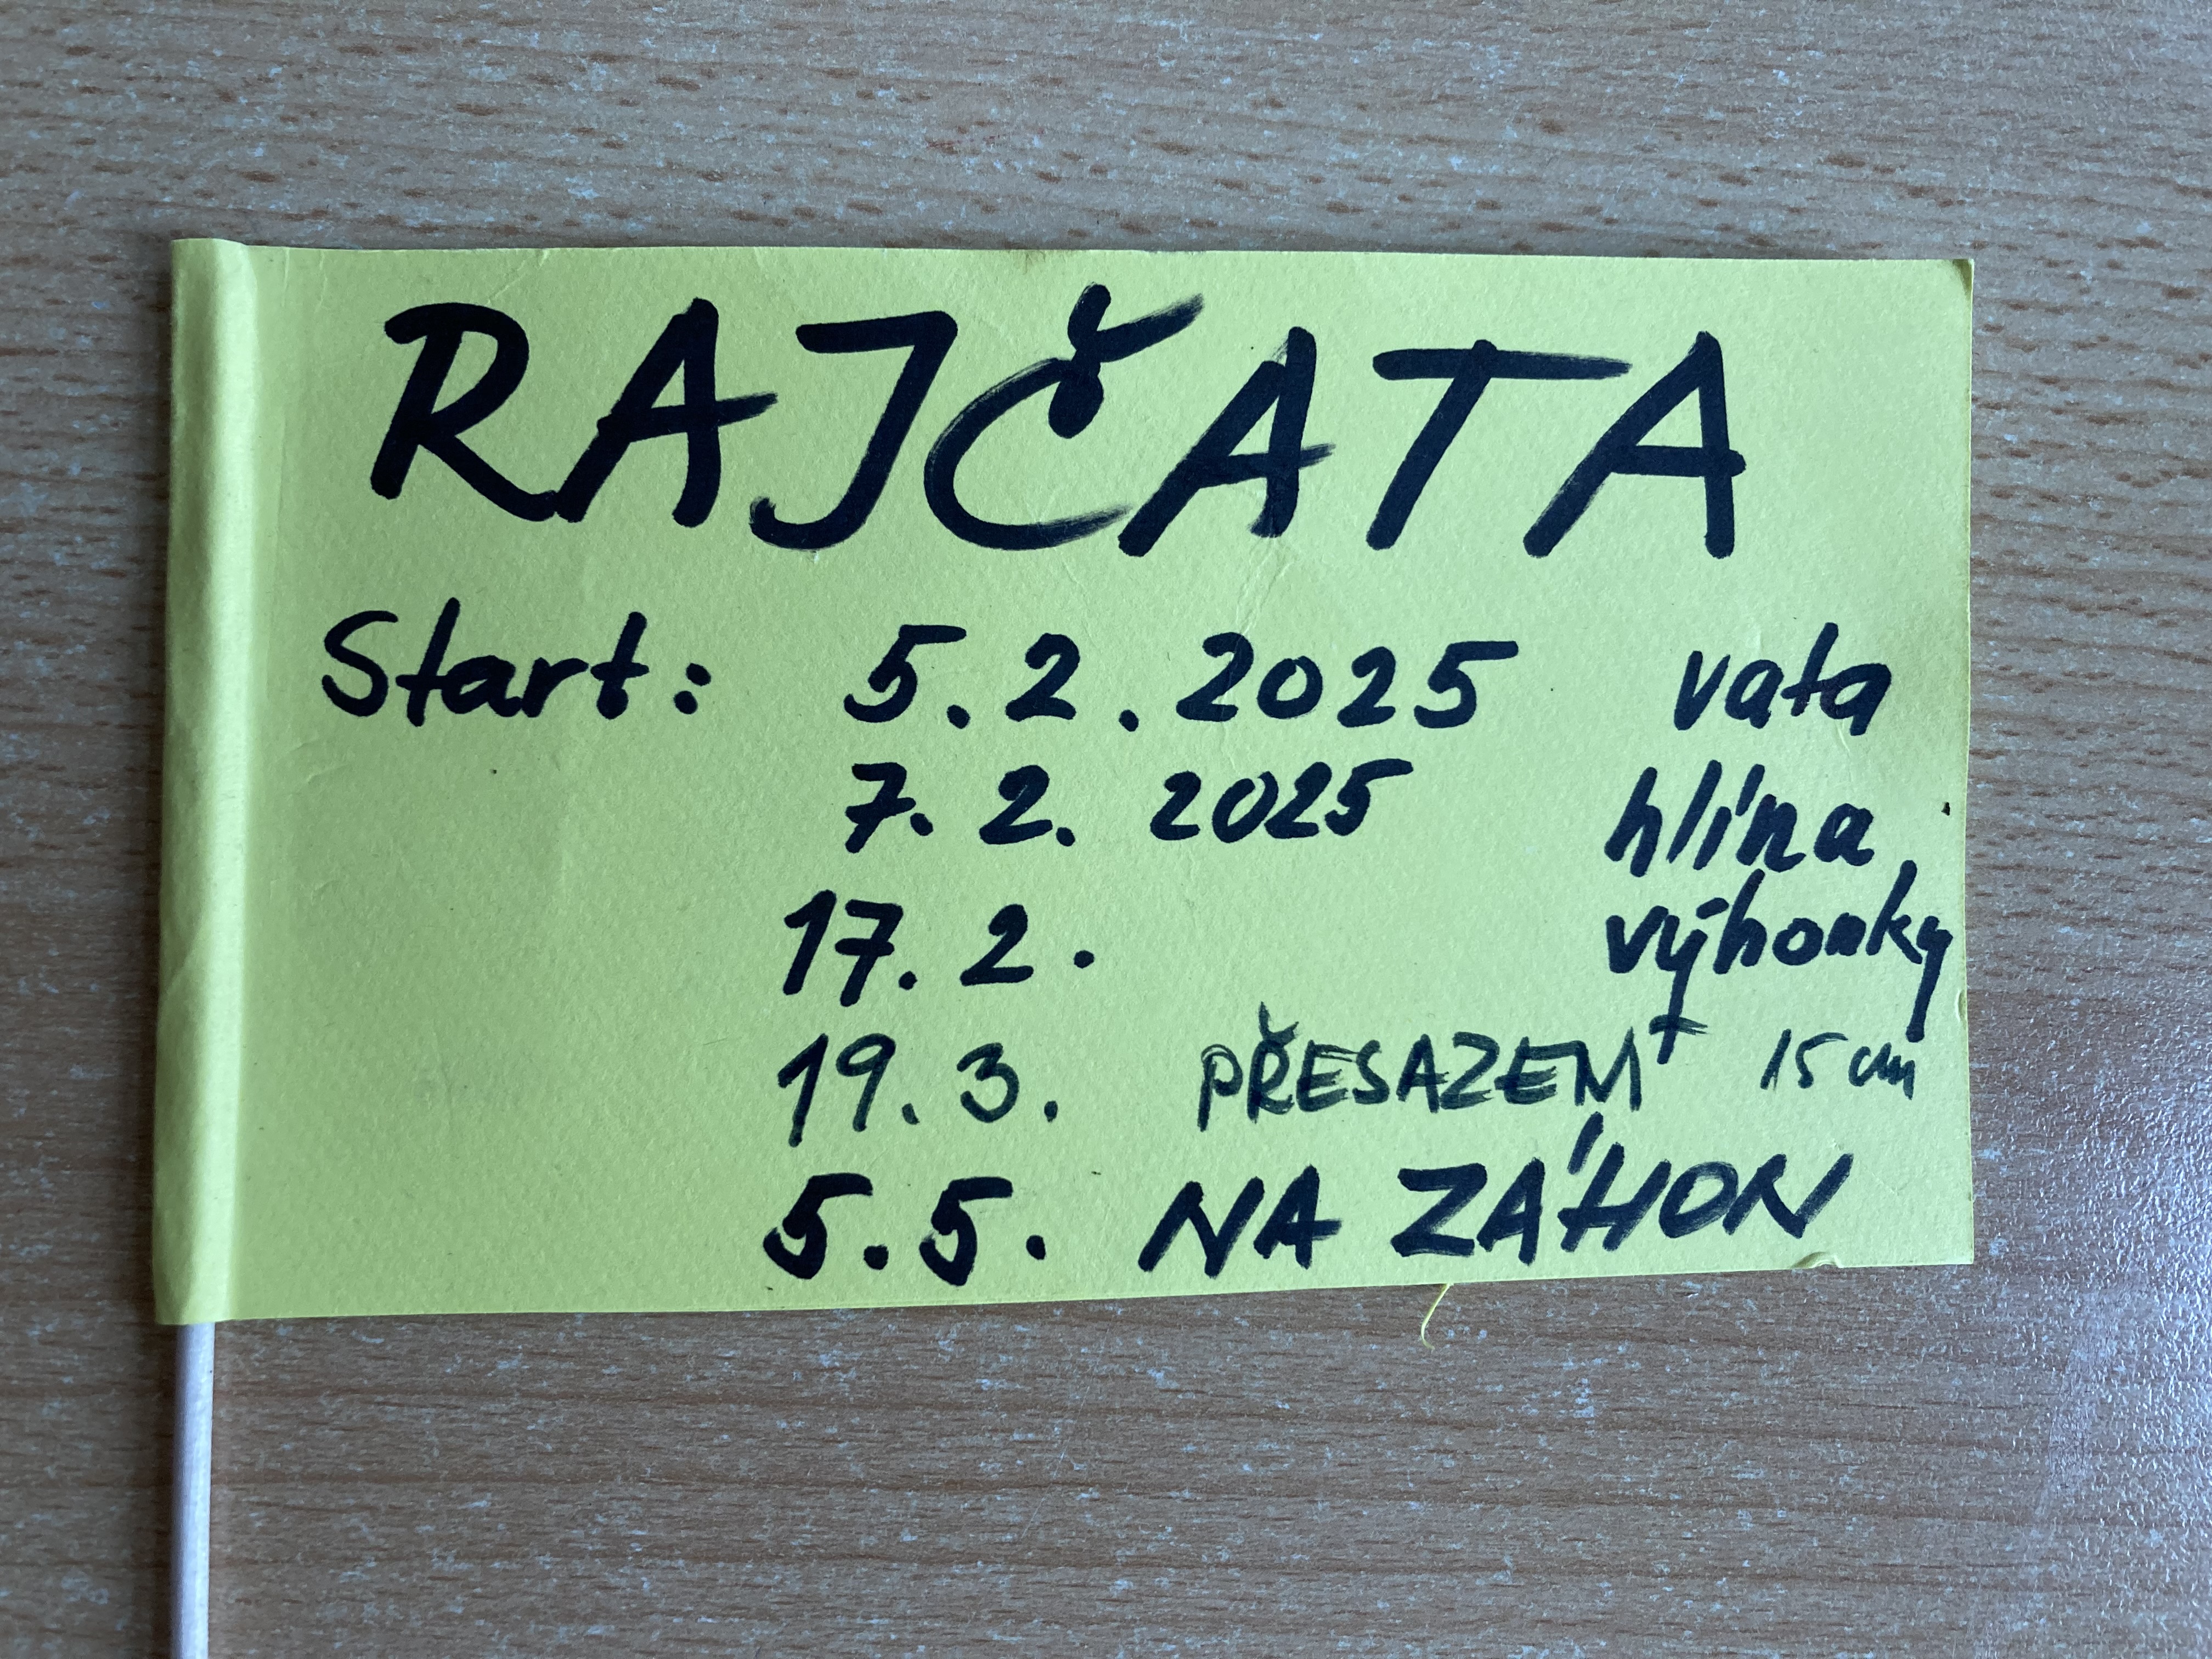 RAJČATA
Start: 5.2.2025 vata
7.2.2025 hlína
17.2. výhonky
19.3. PŘESAZENÍ 15 cm
5.5. NA ZÁHON